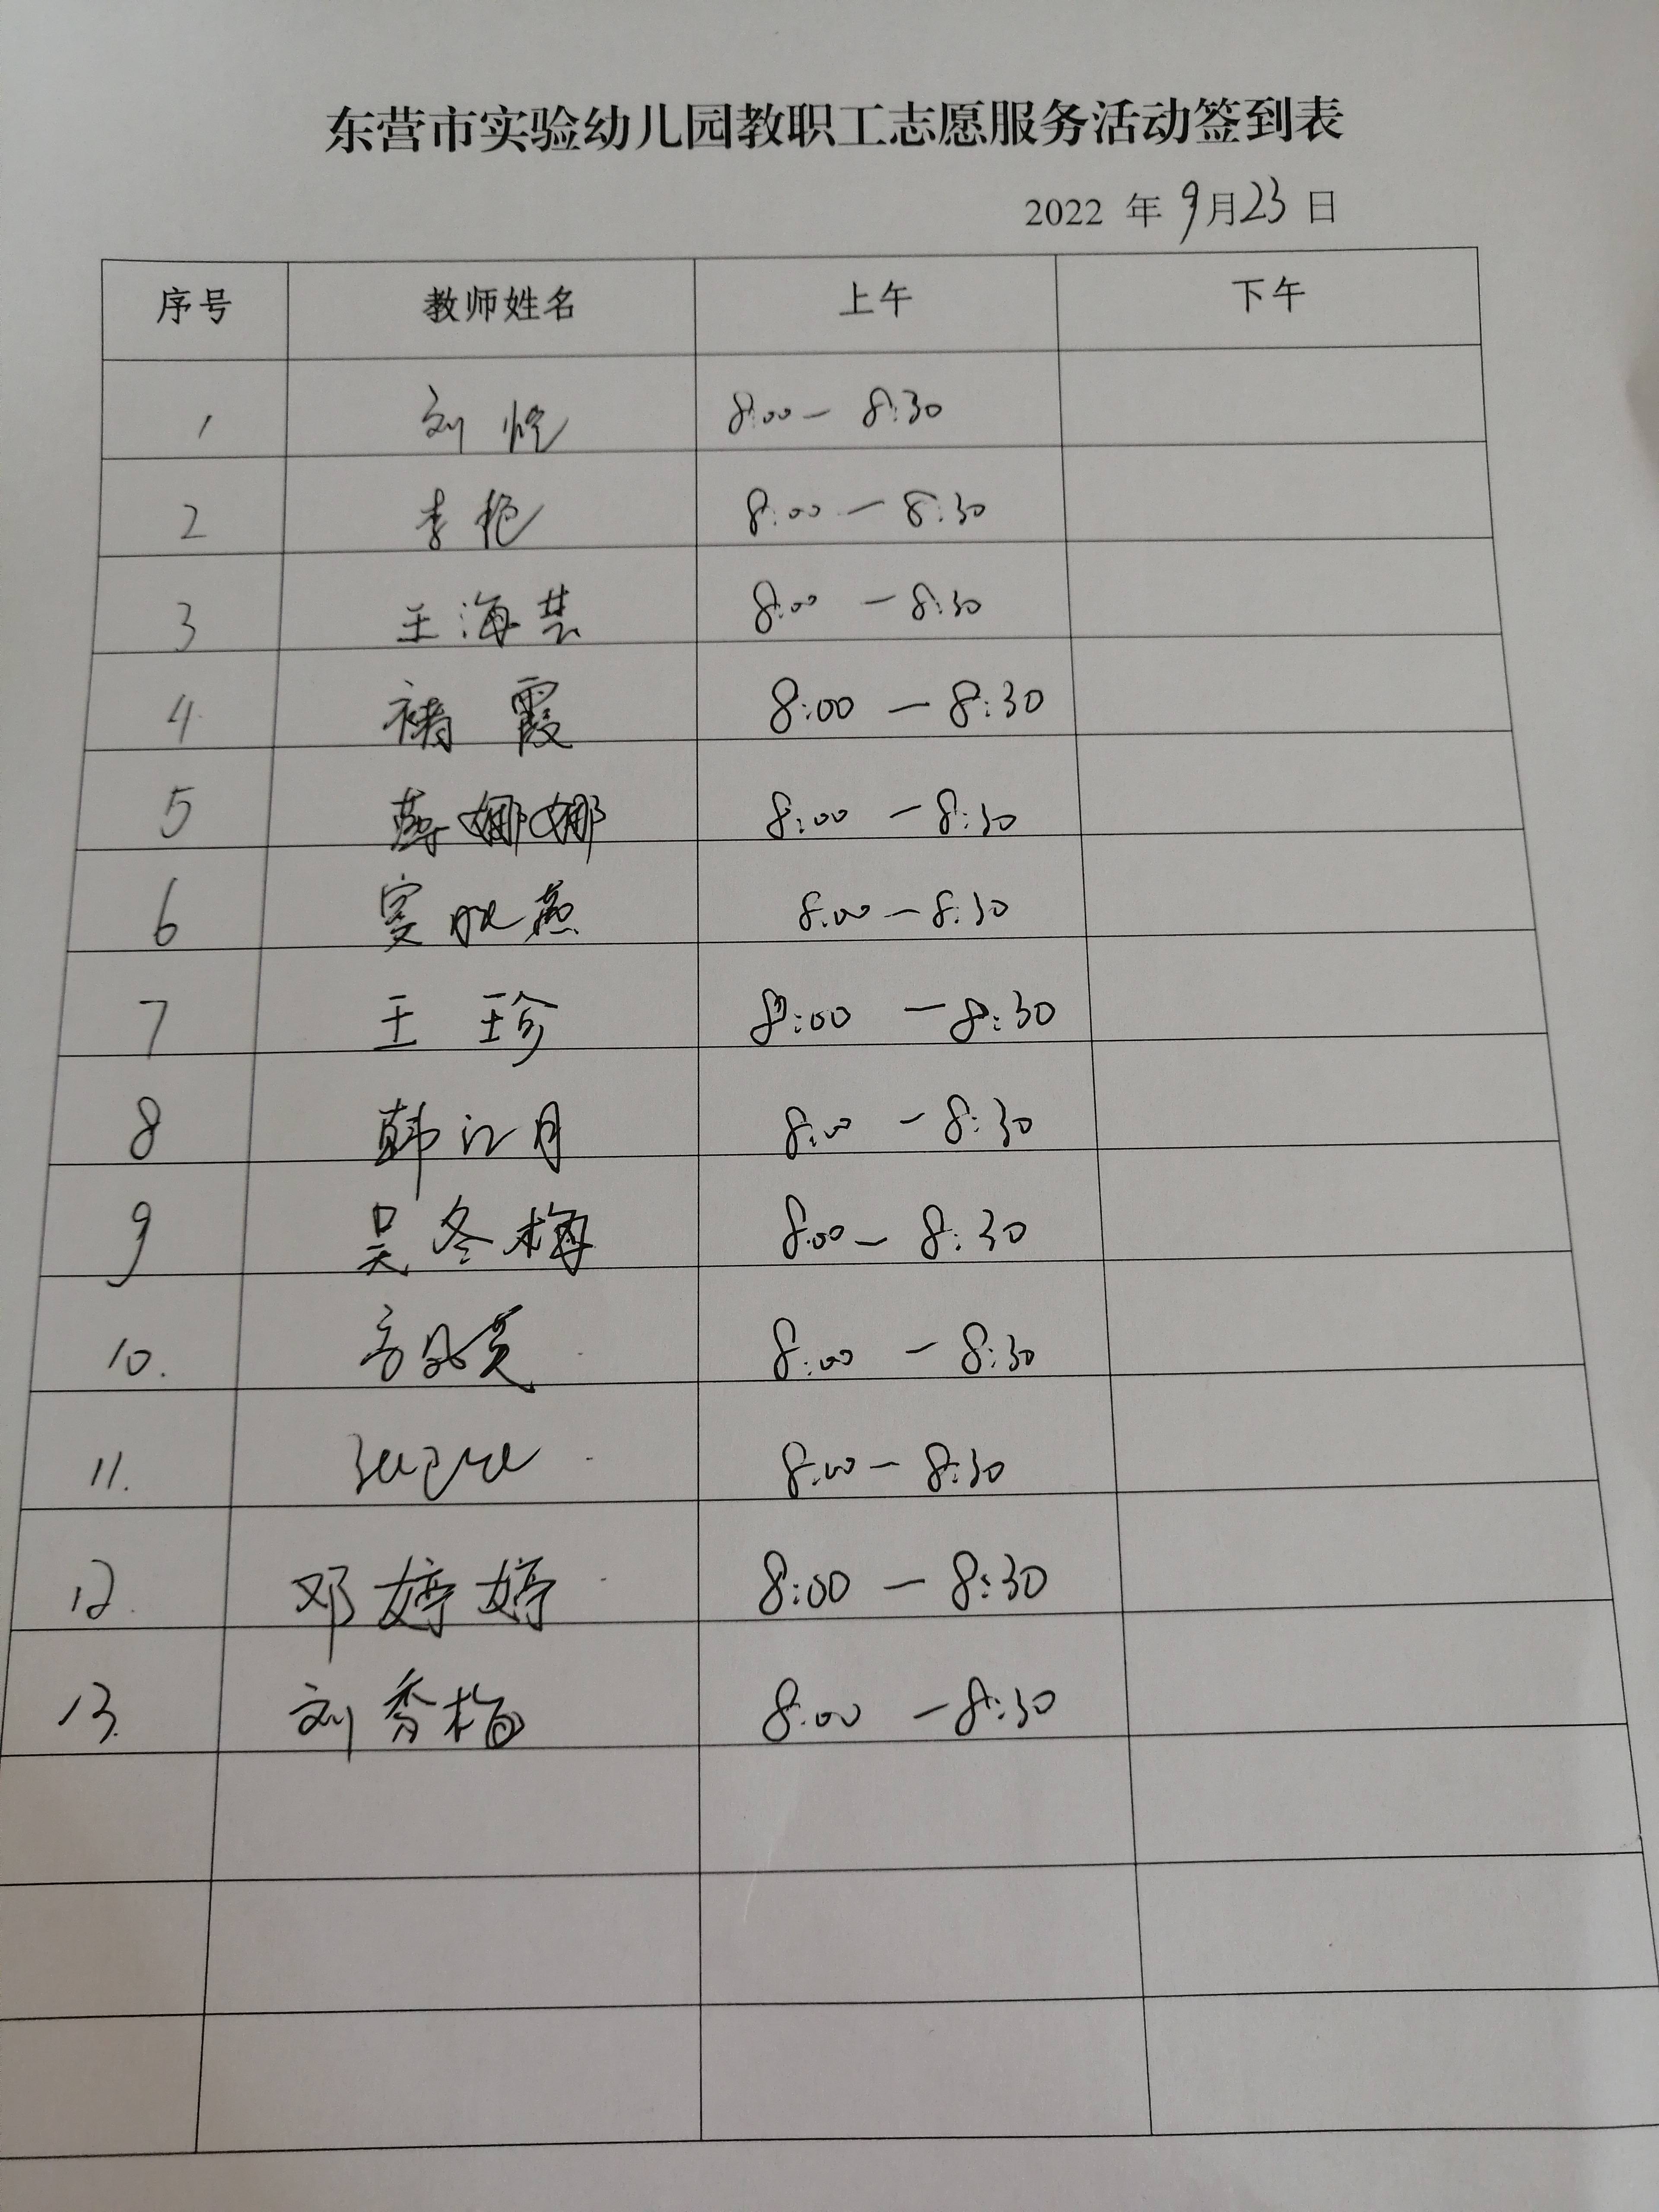 东营市实验幼儿园教职工志愿服务活动签到表
2022 年 9月23 日
序号 教师姓名 上午 下午
1 刘 8:00 — 8:30
2 李艳 8:00 — 8:30
3 王海芸 8:00 — 8:30
4 褚霞 8:00 — 8:30
5 薛娜娜 8:00 — 8:30
6 窦晓燕 8:00 — 8:30
7 王珍 8:00 — 8:30
8 韩江月 8:00 — 8:30
9 吴冬梅 8:00 — 8:30
10. 8:00 — 8:30
11. 8:00 — 8:30
12. 邓婷婷 8:00 — 8:30
13. 刘秀梅 8:00 — 8:30